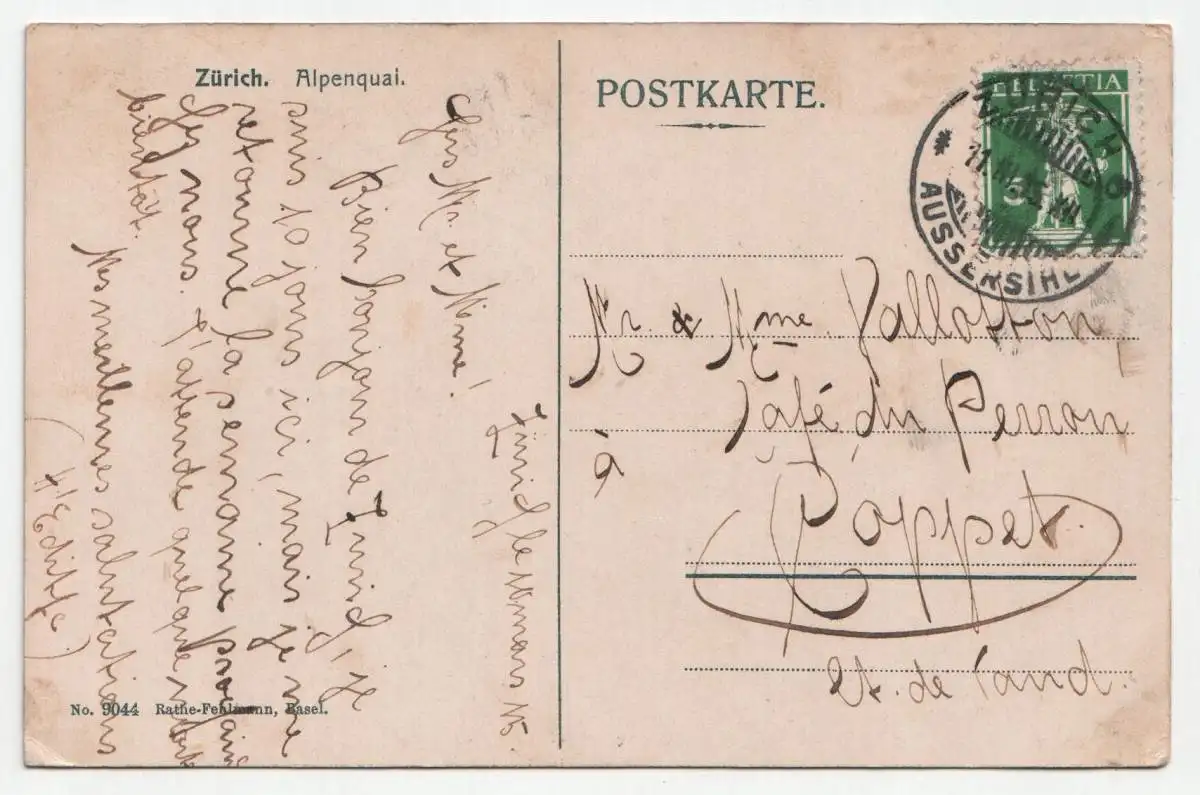 Zürich. Alpenquai.
POSTKARTE.
HELVETIA
5
ZÜRICH
11.III.15.
AUSSERSIHL
Mr. & Mme. Vallotton,
Café du Perron
à
Coppet.
Ct. de Vaud.
Zürich, le 10 mars 15.
Mr. et Mme!
Bien bonjour de Zurich, je
suis 10 jours ici, mais je ne
retourne la semaine prochain
chez nous. J'attende quelque mot
bientôt.
Mes meilleures salutations
No. 9044 Rathe-Fehlmann, Basel.